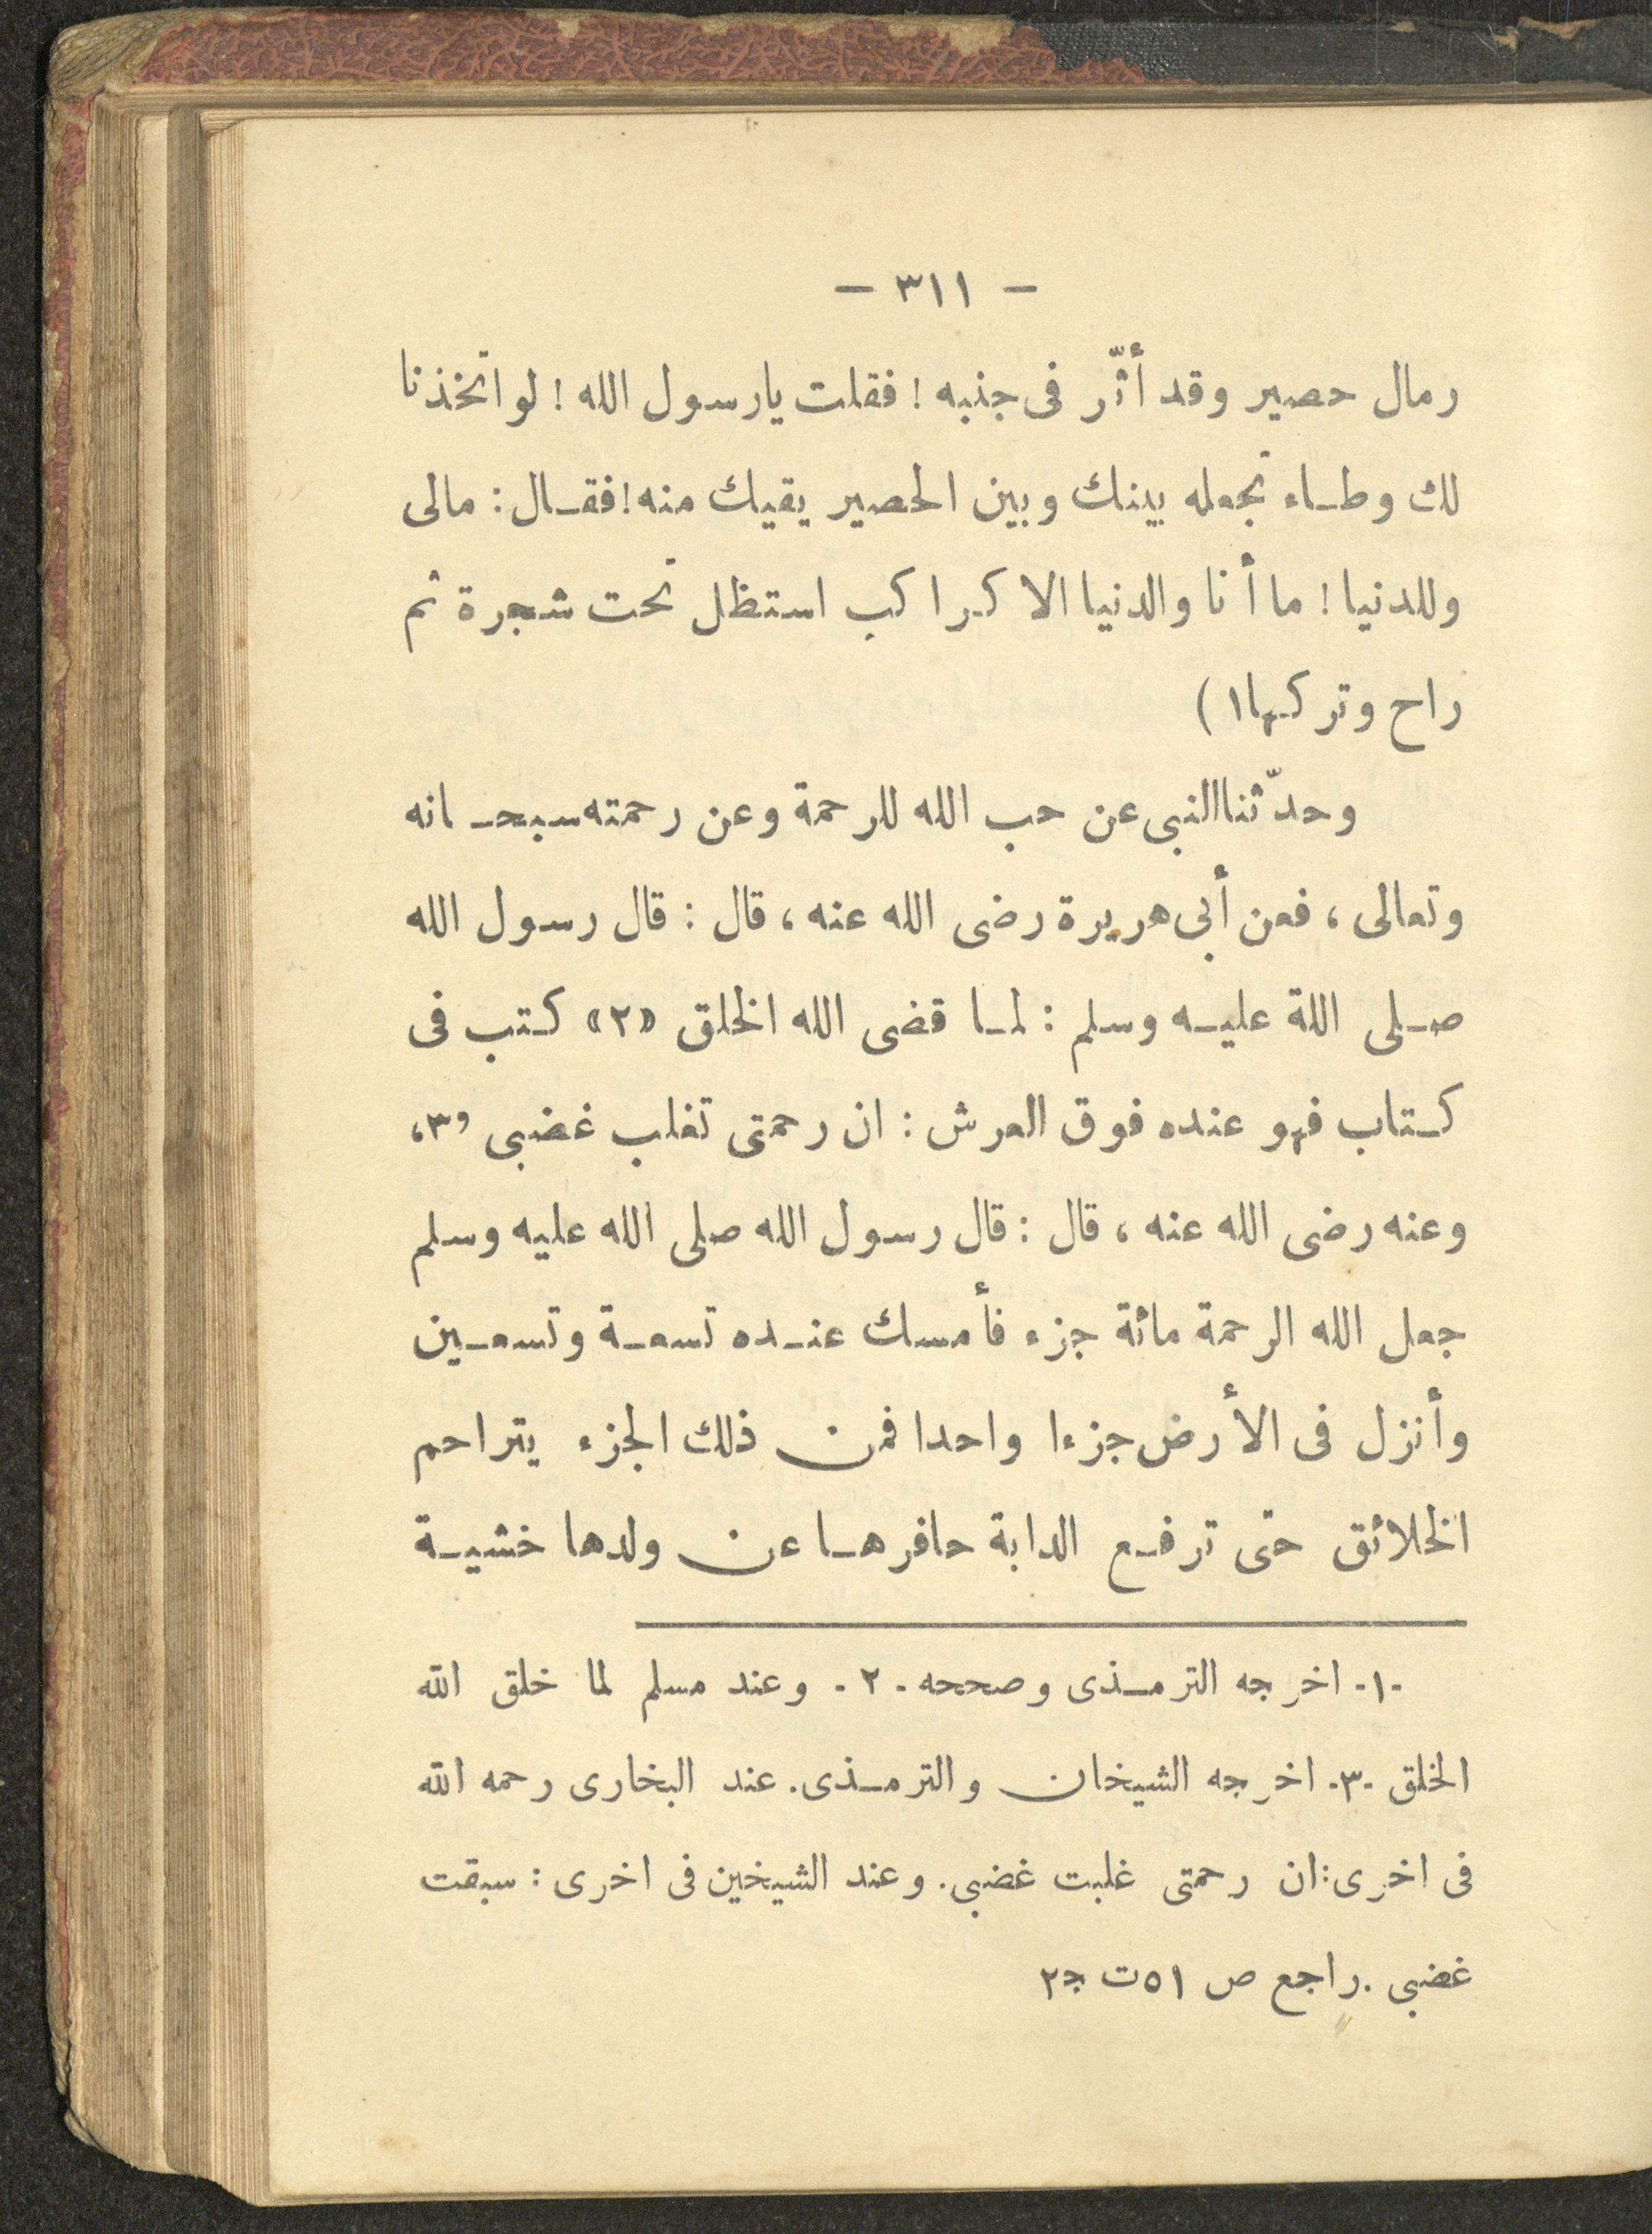 — ٣١١ —
رمال حصير وقد أثّر فى جنبه ! فقلت يارسول الله ! لو اتخذنا
لك وطـاء تجعله بينك وبين الحصير يقيك منه ! فقـال : مالى
وللدنيا ! ما أنا والدنيا الا كراكب استظل تحت شجرة ثم
راح وتركها ١ )
وحدّثنا النبى عن حب الله للرحمة وعن رحمته سبحـانه
وتعالى ، فعن أبى هريرة رضى الله عنه ، قال : قال رسول الله
صـلى اللة عليـه وسلم : لمـا قضى الله الخلق «٢» كـتب فى
كـتاب فهو عنده فوق العرش : ان رحمتى تغلب غضبى ‹٣،
وعنه رضى الله عنه ، قال : قال رسول الله صلى الله عليه وسلم
جعل الله الرحمة مائة جزء فأمسك عنـده تسعـة وتسعـين
وأنزل فى الأرض جزءا واحدا فمن ذلك الجزء يتراحم
الخلائق حتى ترفـع الدابة حافرهـا عن ولدها خشيـة
-١- اخرجه الترمـذى وصححه -٢- وعند مسلم لما خلق الله
الخلق -٣- اخرجه الشيخان والترمـذى. عند البخارى رحمه الله
فى اخرى: ان رحمتى غلبت غضبى. وعند الشيخين فى اخرى : سبقت
غضبى . راجع ص ٥١ ت ج٢